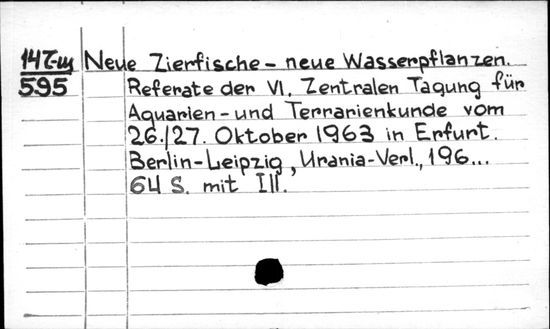 Neue Zierfische - neue Wasserpflanzen.
595
Referate der VI. Zentralen Tagung für
Aquarien- und Terrarienkunde vom
26./27. Oktober 1963 in Erfurt.
Berlin-Leipzig, Urania-Verl., 196...
64 S. mit Ill.